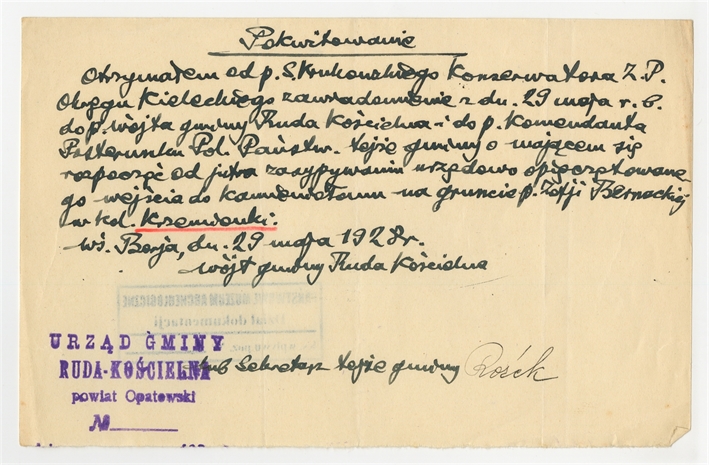 Pokwitowanie
Otrzymałem od p. S. Krukowskiego Konserwatora Z.P.
Okręgu Kieleckiego zawiadomienie z dn. 29 maja r. b.
do p. wójta gminy Ruda Kościelna i do p. Komendanta
Posterunku Pol. Państw. tejże gminy o mającem się
rozpocząć od jutra zasypywaniu urzędowo opieczętowane
go wejścia do kamieniołomu na gruncie p. Zofji Bernackiej
w kol. Krzemionki.
wś. Borja, dn. 29 maja 1928 r.
wójt gminy Ruda Kościelna
PAŃSTWOWE MUZEUM ARCHEOLOGICZNE
Dział dokumentacji
URZĄD GMINY
RUDA-KOŚCIELNA
powiat Opatowski
№
lub Sekretarz tejże gminy Rośek